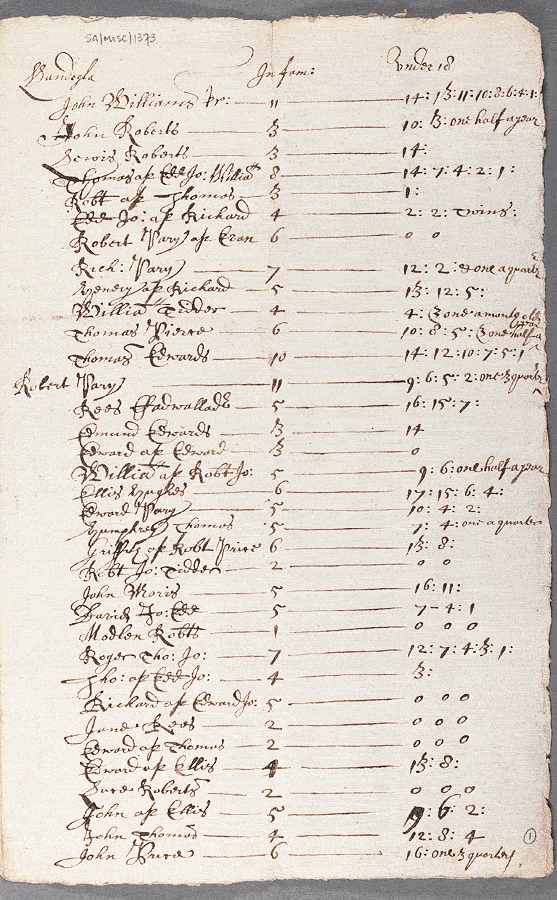 SA/MISC/1373
Llandegla In fam: Under 18
John Williams Sr: 11 14: 13: 11: 10: 8: 6: 4: 1:
John Roberts 3 10: 3: one half a year
Lewis Roberts 3 14:
Thomas ap Edd Jo: Willia 8 14: 7: 4: 2: 1:
Robt ap Thomas 3 1:
Edd Jo: ap Richard 4 2: 2: twins:
Robert Pary ap Evan 6 0 0
Rich: Pary 7 12: 2: & one a quarter
Henery ap Richard 5 13: 12: 5:
Willia Tudder 4 4: 3 one a month old
Thomas Pierce 6 10: 8: 5: 3 one half a year
Thomas Edwards 10 14: 12: 10: 7: 5: 1
Robert Pary 11 9: 6: 5: 2: one 3 quarter
Rees Cadwallader 5 16: 15: 7:
Edmund Edwards 3 14
Edward ap Edward 3 0
Willia ap Robt Jo: 5 9: 6: one half a year
Ellis Hughes 6 17: 15: 6: 4:
Edward Pary 5 10: 4: 2:
Humphrey Thomas 5 7: 4: one a quarter
Griffith ap Robt Price 6 13: 8:
Robt Jo: Tudder 2 0 0
John Moris 5 16: 11:
David Jo: Edd 5 7 - 4: 1
Modlen Robts 1 0 0 0
Roger Tho: Jo: 7 12: 7: 4: 3: 1:
Tho: ap Edd Jo: 4 3:
Richard ap Edward Jo: 5 0 0 0
Jane Rees 2 0 0 0
Edward ap Thomas 2 0 0 0
Edward ap Ellis 4 13: 8:
Roberts 2 0 0 0
John ap Ellis 5 9: 6: 2:
John Thomas 4 12: 8: 4
John Price 6 16: one 3 quarters
1